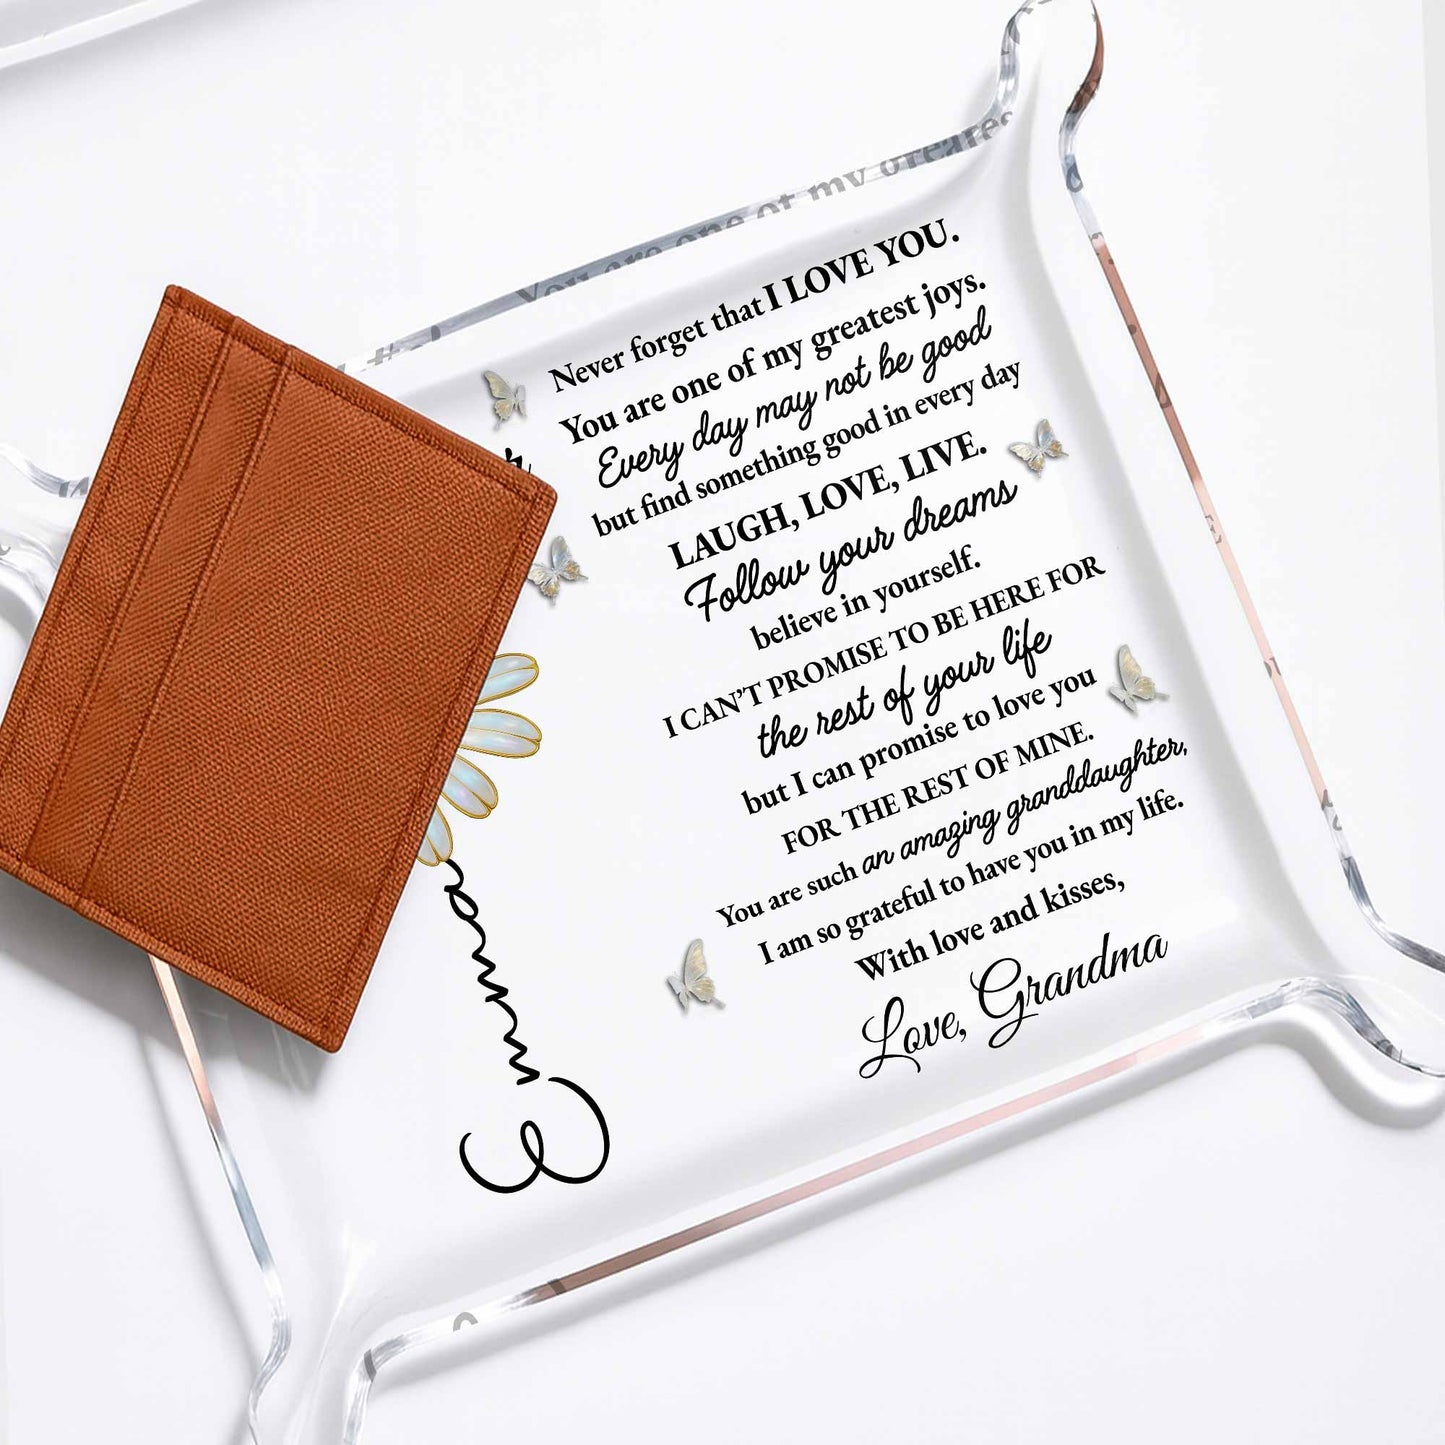 Never forget that I LOVE YOU.
You are one of my greatest joys.
Every day may not be good
but find something good in every day
LAUGH, LOVE, LIVE.
Follow your dreams
believe in yourself.
I CAN'T PROMISE TO BE HERE FOR
the rest of your life
but I can promise to love you
FOR THE REST OF MINE.
You are such an amazing granddaughter,
I am so grateful to have you in my life.
With love and kisses,
Love, Grandma
Emma